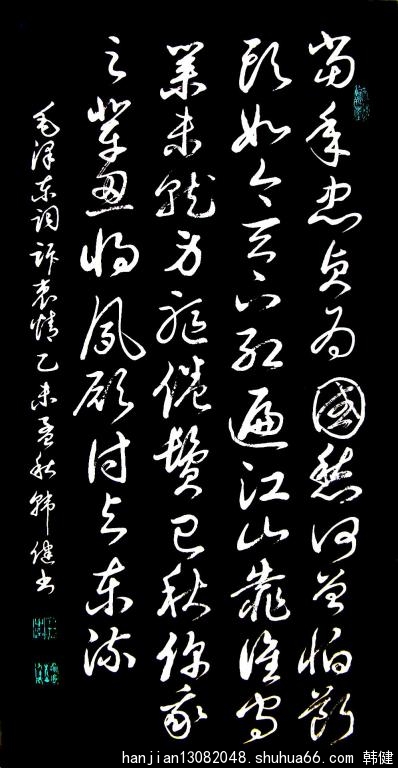 当年忠贞为國愁何曾怕断
头如今天下红遍江山靠谁守
業未就身躯倦鬓已秋你我
之辈忍将夙愿付与东流
毛泽东词诉衷情乙未孟秋韩健书
hanjian13082048.shuhua66.com 韩健